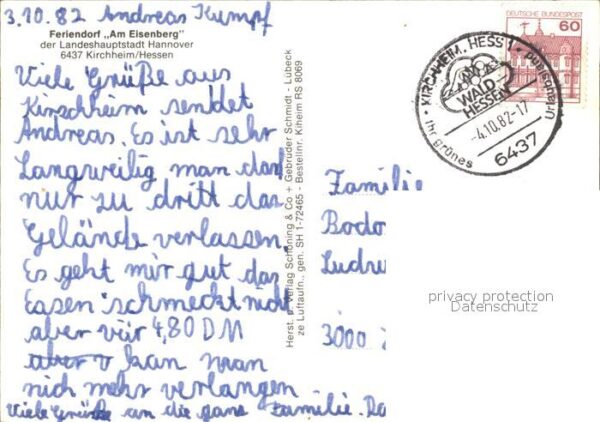 3.10.82 Andreas Kumpf
Feriendorf „Am Eisenberg"
der Landeshauptstadt Hannover
6437 Kirchheim/Hessen
Viele Grüße aus
Kirschheim sendet
Andreas. Es ist sehr
Langweilig man darf
nur zu dritt das
Gelände verlassen.
Es geht mir gut das
Eassen schmeckt nich
aber vür 4,80 DM
aber v kan man
nich mehr verlangen
Viele Grüße an die ganz Familie.
Herst. u. Verlag Schöning & Co + Gebrüder Schmidt - Lübeck
ze Luftaufn., gen. SH 1-72465 - Bestellnr. Kiheim RS 8069
DEUTSCHE BUNDESPOST
60
KIRCHHEIM, HESS 1
WALD
HESSEN
-4.10.82-17
6437
Ihr grünes
Urlaubsziel
Familie
Bodo
Ludw
3000
privacy protection
Datenschutz